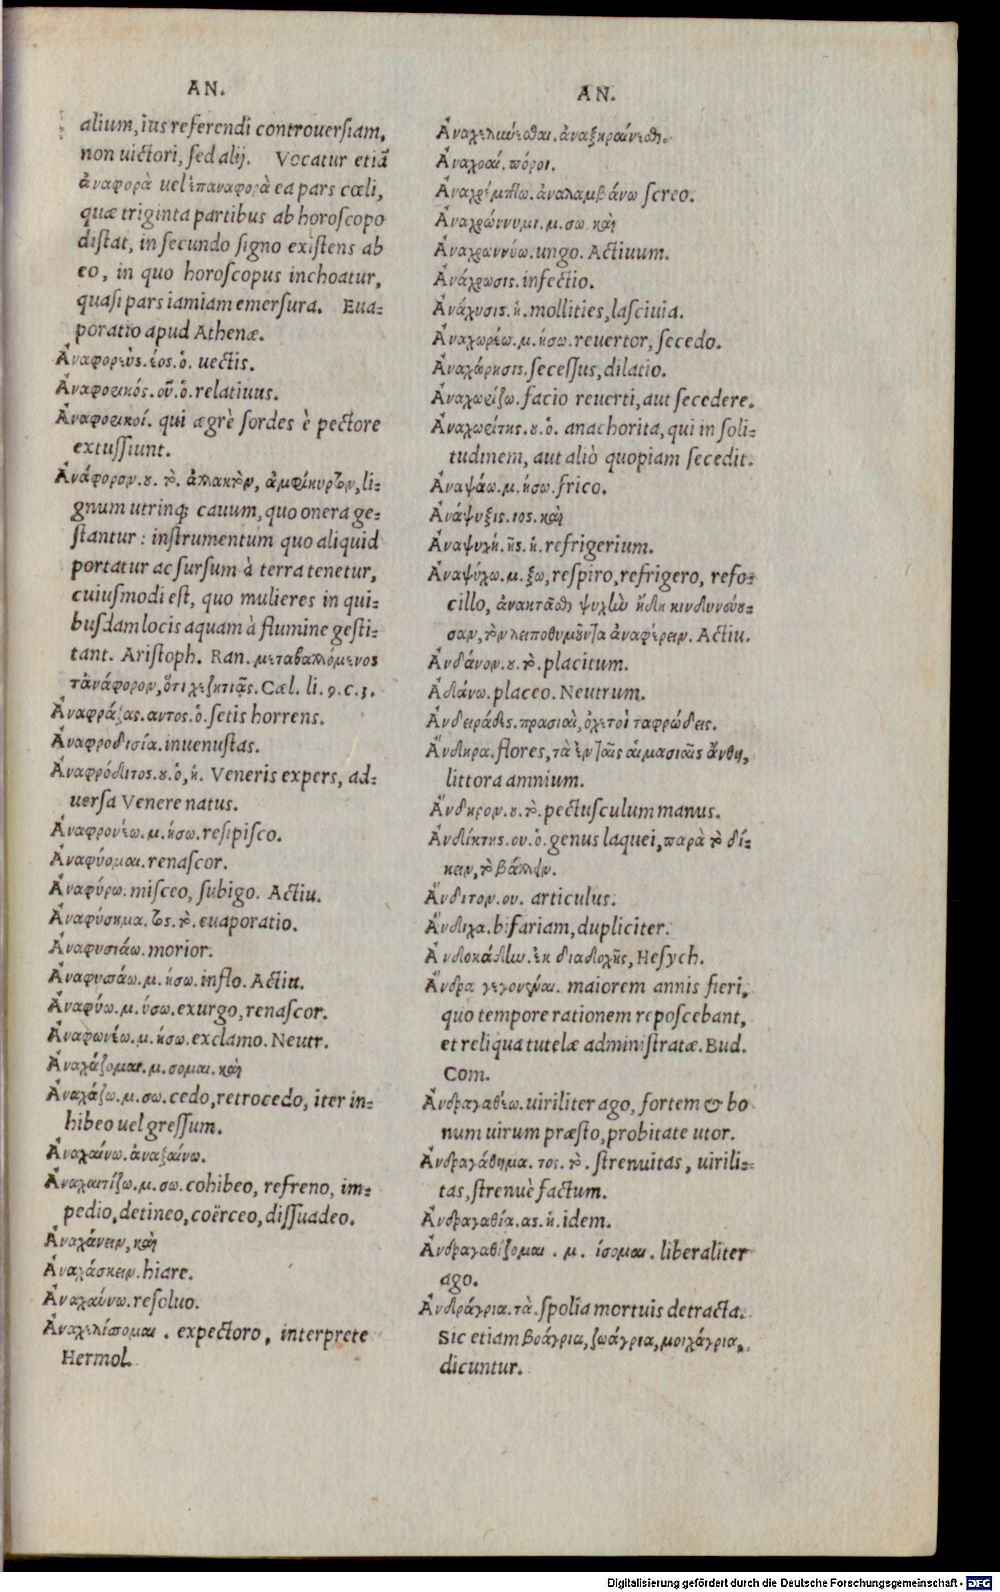 AN.
alium, ius referendi controuersiam,
non uictori, sed alij. Vocatur etiã
ἀναφορὰ uel ἐπαναφορὰ ea pars cœli,
quæ triginta partibus ab horoscopo
distat, in secundo signo existens ab
eo, in quo horoscopus inchoatur,
quasi pars iamiam emersura. Eua-
poratio apud Athenæ.
Ἀναφορεὺς. έος. ὁ. uectis.
Ἀναφορικός. οῦ. ὁ. relatiuus.
Ἀναφορικοί. qui ægrè sordes è pectore
extussiunt.
Ἀνάφορον. ου. τὸ. ἀλλακτὸν, ἀμφίκυρτον, li-
gnum utrinq; cauum, quo onera ge-
stantur: instrumentum quo aliquid
portatur ac sursum à terra tenetur,
cuiusmodi est, quo mulieres in qui-
busdam locis aquam à flumine gesti-
tant. Aristoph. Ran. μεταβαλλόμενος
τἀνάφορον, ὅτι χεζητιᾷς. Cæl. li. 9. c. 3.
Ἀναφράξας. αντος. ὁ. setis horrens.
Ἀναφροδισία. inuenustas.
Ἀναφρόδιτος. ου. ὁ, ἡ. Veneris expers, ad-
uersa Venere natus.
Ἀναφρονέω. μ. ήσω. resipisco.
Ἀναφύομαι. renascor.
Ἀναφύρω. misceo, subigo. Actiu.
Ἀναφύσημα. τος. τὸ. euaporatio.
Ἀναφυσιάω. morior.
Ἀναφυσάω. μ. ήσω. inflo. Actiu.
Ἀναφύω. μ. ύσω. exurgo, renascor.
Ἀναφωνέω. μ. ήσω. exclamo. Neutr.
Ἀναχάζομαι. μ. σομαι. καὶ
Ἀναχάζω. μ. σω. cedo, retrocedo, iter in-
hibeo uel gressum.
Ἀναχαίνω. ἀναξαίνω.
Ἀναχαιτίζω. μ. σω. cohibeo, refreno, im-
pedio, detineo, coërceo, dissuadeo.
Ἀναχάνειν, καὶ
Ἀναχάσκειν. hiare.
Ἀναχαύνω. resoluo.
Ἀναχελίσσομαι. expectoro, interprete
Hermol.
AN.
ἀναξηραίνεσθ.
Ἀναχοαί. πόροι.
Ἀναχρέμπτω. ἀναλαμβάνω screo.
Ἀναχρώννυμι. μ. σω. καὶ
Ἀναχρωννύω. ungo. Actiuum.
Ἀνάχρωσις. infectio.
Ἀνάχυσις. ἡ. mollities, lasciuia.
Ἀναχωρέω. μ. ήσω. reuertor, secedo.
Ἀναχώρησις. secessus, dilatio.
Ἀναχωρίζω. facio reuerti, aut secedere.
Ἀναχωρίτης. ου. ὁ. anachorita, qui in soli-
tudinem, aut aliò quopiam secedit.
Ἀναψάω. μ. ήσω. frico.
Ἀνάψυξις. ιος. καὶ
Ἀναψυχή. ῆς. ἡ. refrigerium.
Ἀναψύχω. μ. ξω, respiro, refrigero, refo-
cillo, ἀνακτᾶσθ ψυχὴν ἤδη κινδυνεύου-
σαν, τὸν λειποθυμοῦντα ἀναφέρειν. Actiu.
Ἀνδάνον. ου. τὸ. placitum.
Ἀδάνω. placeo. Neutrum.
Ἀνδειράδες. πρασιαὶ, ὀχετοὶ ταφρώδεις.
Ἄνδηρα. flores, τὰ ἐν ταῖς αἱμασιαῖς ἄνθη,
littora amnium.
Ἄνδηρον. ου. τὸ. pectusculum manus.
Ἀνδίκτης. ου. ὁ. genus laquei, παρὰ τὸ δί-
κειν, τὸ βάλλειν.
Ἄνδιτον. ου. articulus.
Ἄνδιχα. bifariam, dupliciter.
Ἀνδοκάδην. ἐκ διαδοχῆς, Hesych.
Ἄνδρα γεγονέναι. maiorem annis fieri,
quo tempore rationem reposcebant,
et reliqua tutelæ administratæ. Bud.
Com.
Ἀνδραγαθέω. uiriliter ago, fortem & bo
num uirum præsto, probitate utor.
Ἀνδραγάθημα. τος. τὸ. strenuitas, uirili-
tas, strenuè factum.
Ἀνδραγαθία. ας. ἡ. idem.
Ἀνδραγαθίζομαι. μ. ίσομαι. liberaliter
ago.
Ἀνδράγρια. τὰ. spolia mortuis detracta.
Sic etiam βοάγρια, ζωάγρια, μοιχάγρια,
dicuntur.
Digitalisierung gefördert durch die Deutsche Forschungsgemeinschaft - DFG